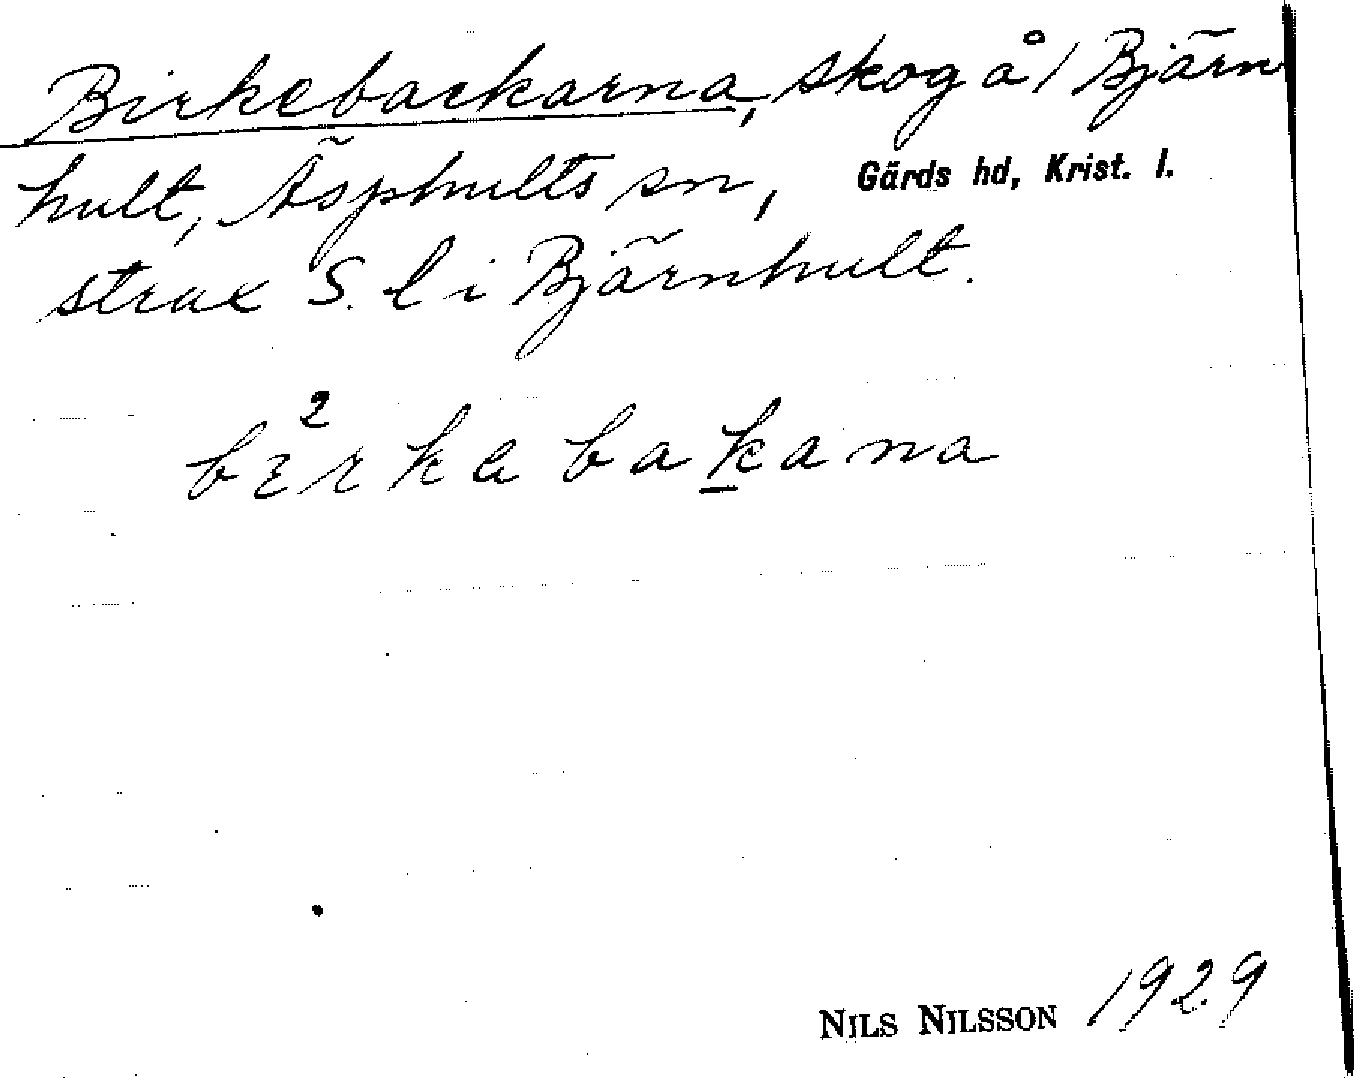 Birkebackarna, skog å 1 Bjärn
hult, Äsphults sn, Gärds hd, Krist. l.
strax S. l i Bjärnhult.
2
bɛrkabakana
NILS NILSSON 1929